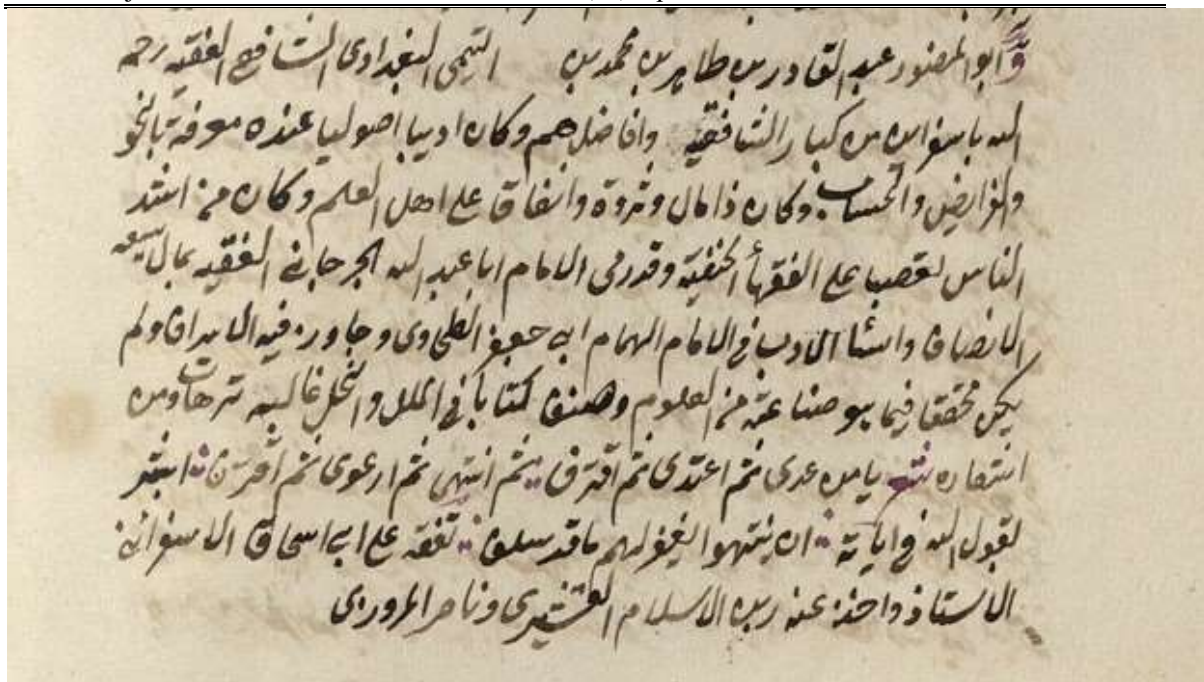 وابو المنصور عبد القادر بن طاهر بن محمد بن التيمى البغدادى الشافعى الفقيه رحمه
الله باسفراين من كبار الشافعية وافاضلهم وكان اديبا اصوليا عنده معرفة بالنحو
والفرايض والحساب وكان ذا مال وثروة وانفاق على اهل العلم وكان من اشد
الناس تعصبا على الفقهأ الحنفية وقد رمى الامام ابا عبد الله الجرجانى الفقيه بما لا يسعه
الانصاف واسئا الادب فى الامام الهمام ابى جعفر الطحاوى وجاوره فيه الايراق ولم
يكن محققا فيما هو صناعته من العلوم وصنف كتابا فى الملل والنحل غالبه ترهات ومن
اشعاره شعر يا من عدى ثم اعتدى ثم اقترف ثم انتهى ثم ارعوى ثم اعترف ابشر
لقول الله فى اياته ان ينتهوا يغفر لهم ما قد سلف تفقه على ابى اسحاق الاسفرائنى
الاستاذ واخذ عنه زين الاسلام القشيرى وناصر المروزى